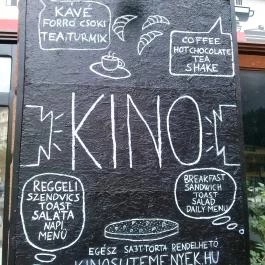 KÁVÉ
FORRÓ CSOKI
TEA, TURMIX
COFFEE
HOT CHOCOLATE
TEA
SHAKE
KINO
REGGELI
SZENDVICS
TOAST
SALÁTA
NAPI
MENÜ
BREAKFAST
SANDWICH
TOAST
SALAD
DAILY MENU
EGÉSZ SAJTTORTA RENDELHETŐ
KINOSUTEMENYEK.HU